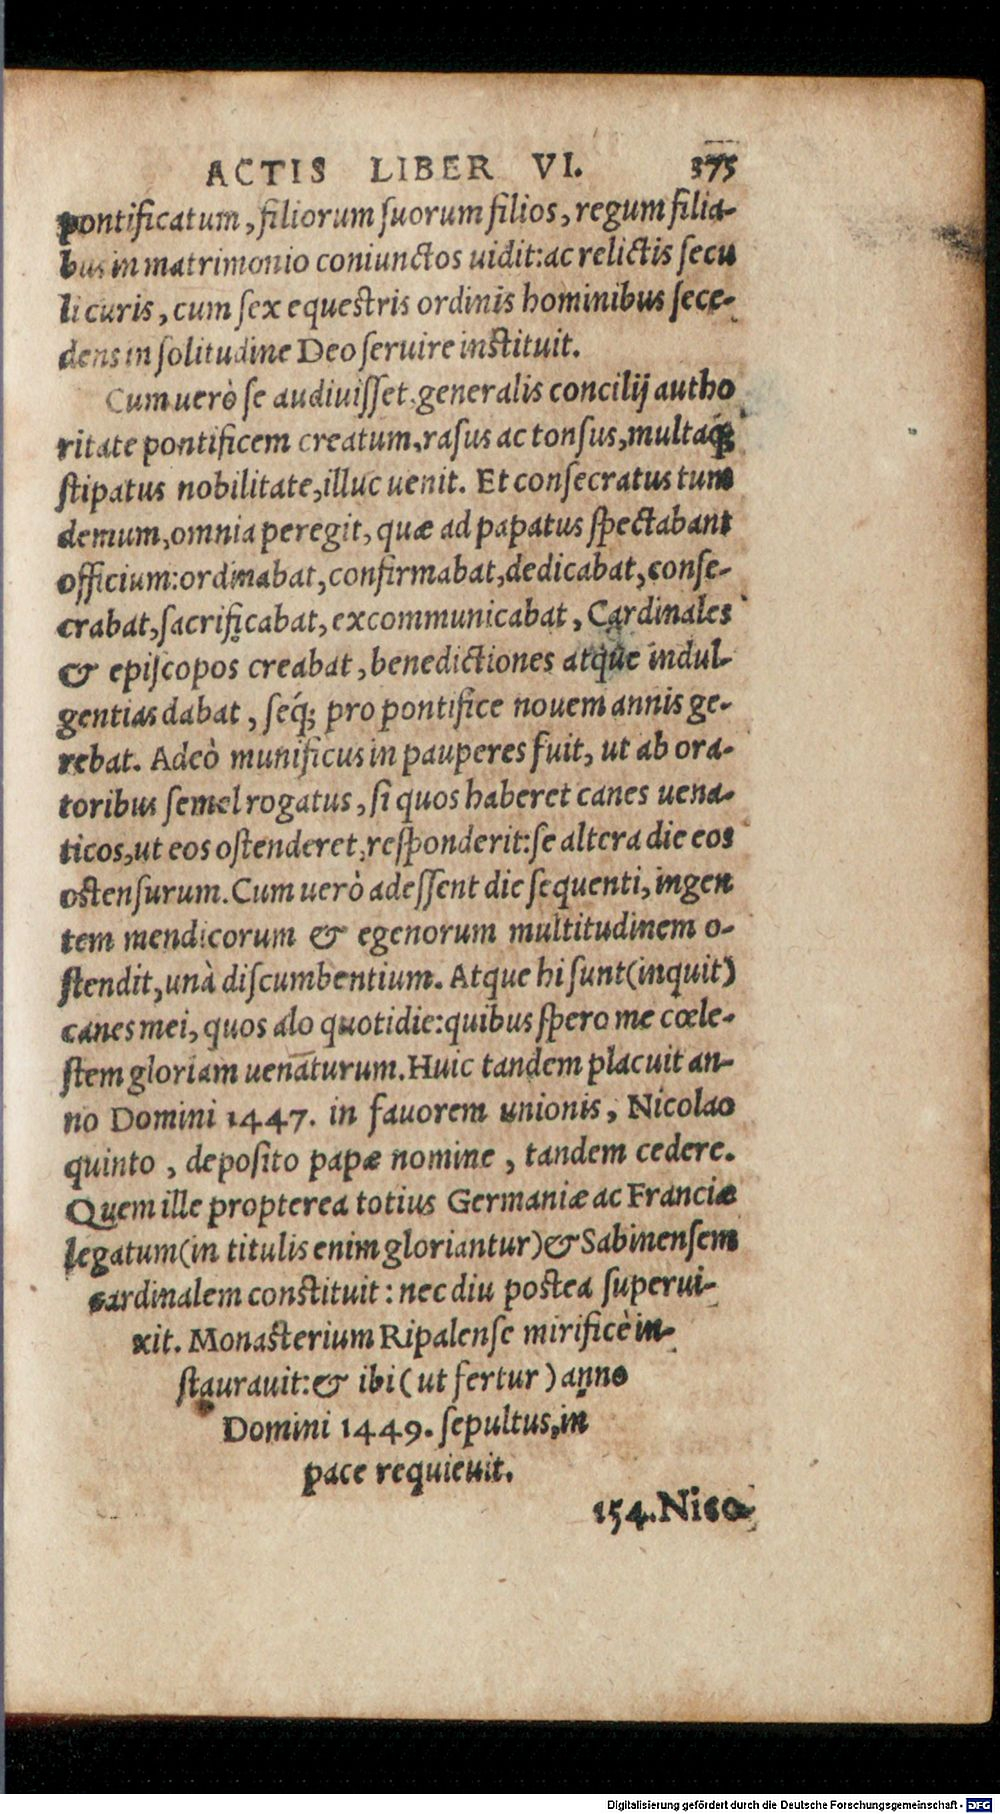 ACTIS LIBER VI. 375
pontificatum, filiorum suorum filios, regum filia-
bus in matrimonio coniunctos uidit: ac relictis secu
li curis, cum sex equestris ordinis hominibus sece-
dens in solitudine Deo seruire instituit.
Cum uerò se audiuisset generalis concilij autho
ritate pontificem creatum, rasus ac tonsus, multaq́;
stipatus nobilitate, illuc uenit. Et consecratus tum
demum, omnia peregit, quæ ad papatus spectabant
officium: ordinabat, confirmabat, dedicabat, conse-
crabat, sacrificabat, excommunicabat, Cardinales
& episcopos creabat, benedictiones atque indul-
gentias dabat, seq́; pro pontifice nouem annis ge-
rebat. Adeò munificus in pauperes fuit, ut ab ora-
toribus semel rogatus, si quos haberet canes uena-
ticos, ut eos ostenderet, responderit: se altera die eos
ostensurum. Cum uerò adessent die sequenti, ingen
tem mendicorum & egenorum multitudinem o-
stendit, unà discumbentium. Atque hi sunt (inquit)
canes mei, quos alo quotidie: quibus spero me cœle-
stem gloriam uenaturum. Huic tandem placuit an-
no Domini 1447. in fauorem unionis, Nicolao
quinto, deposito papæ nomine, tandem cedere.
Quem ille propterea totius Germaniæ ac Franciæ
legatum (in titulis enim gloriantur) & Sabinensem
cardinalem constituit: nec diu postea superui-
xit. Monasterium Ripalense mirificè in-
staurauit: & ibi (ut fertur) anno
Domini 1449. sepultus, in
pace requieuit.
154. Nico-
Digitalisierung gefördert durch die Deutsche Forschungsgemeinschaft - DFG